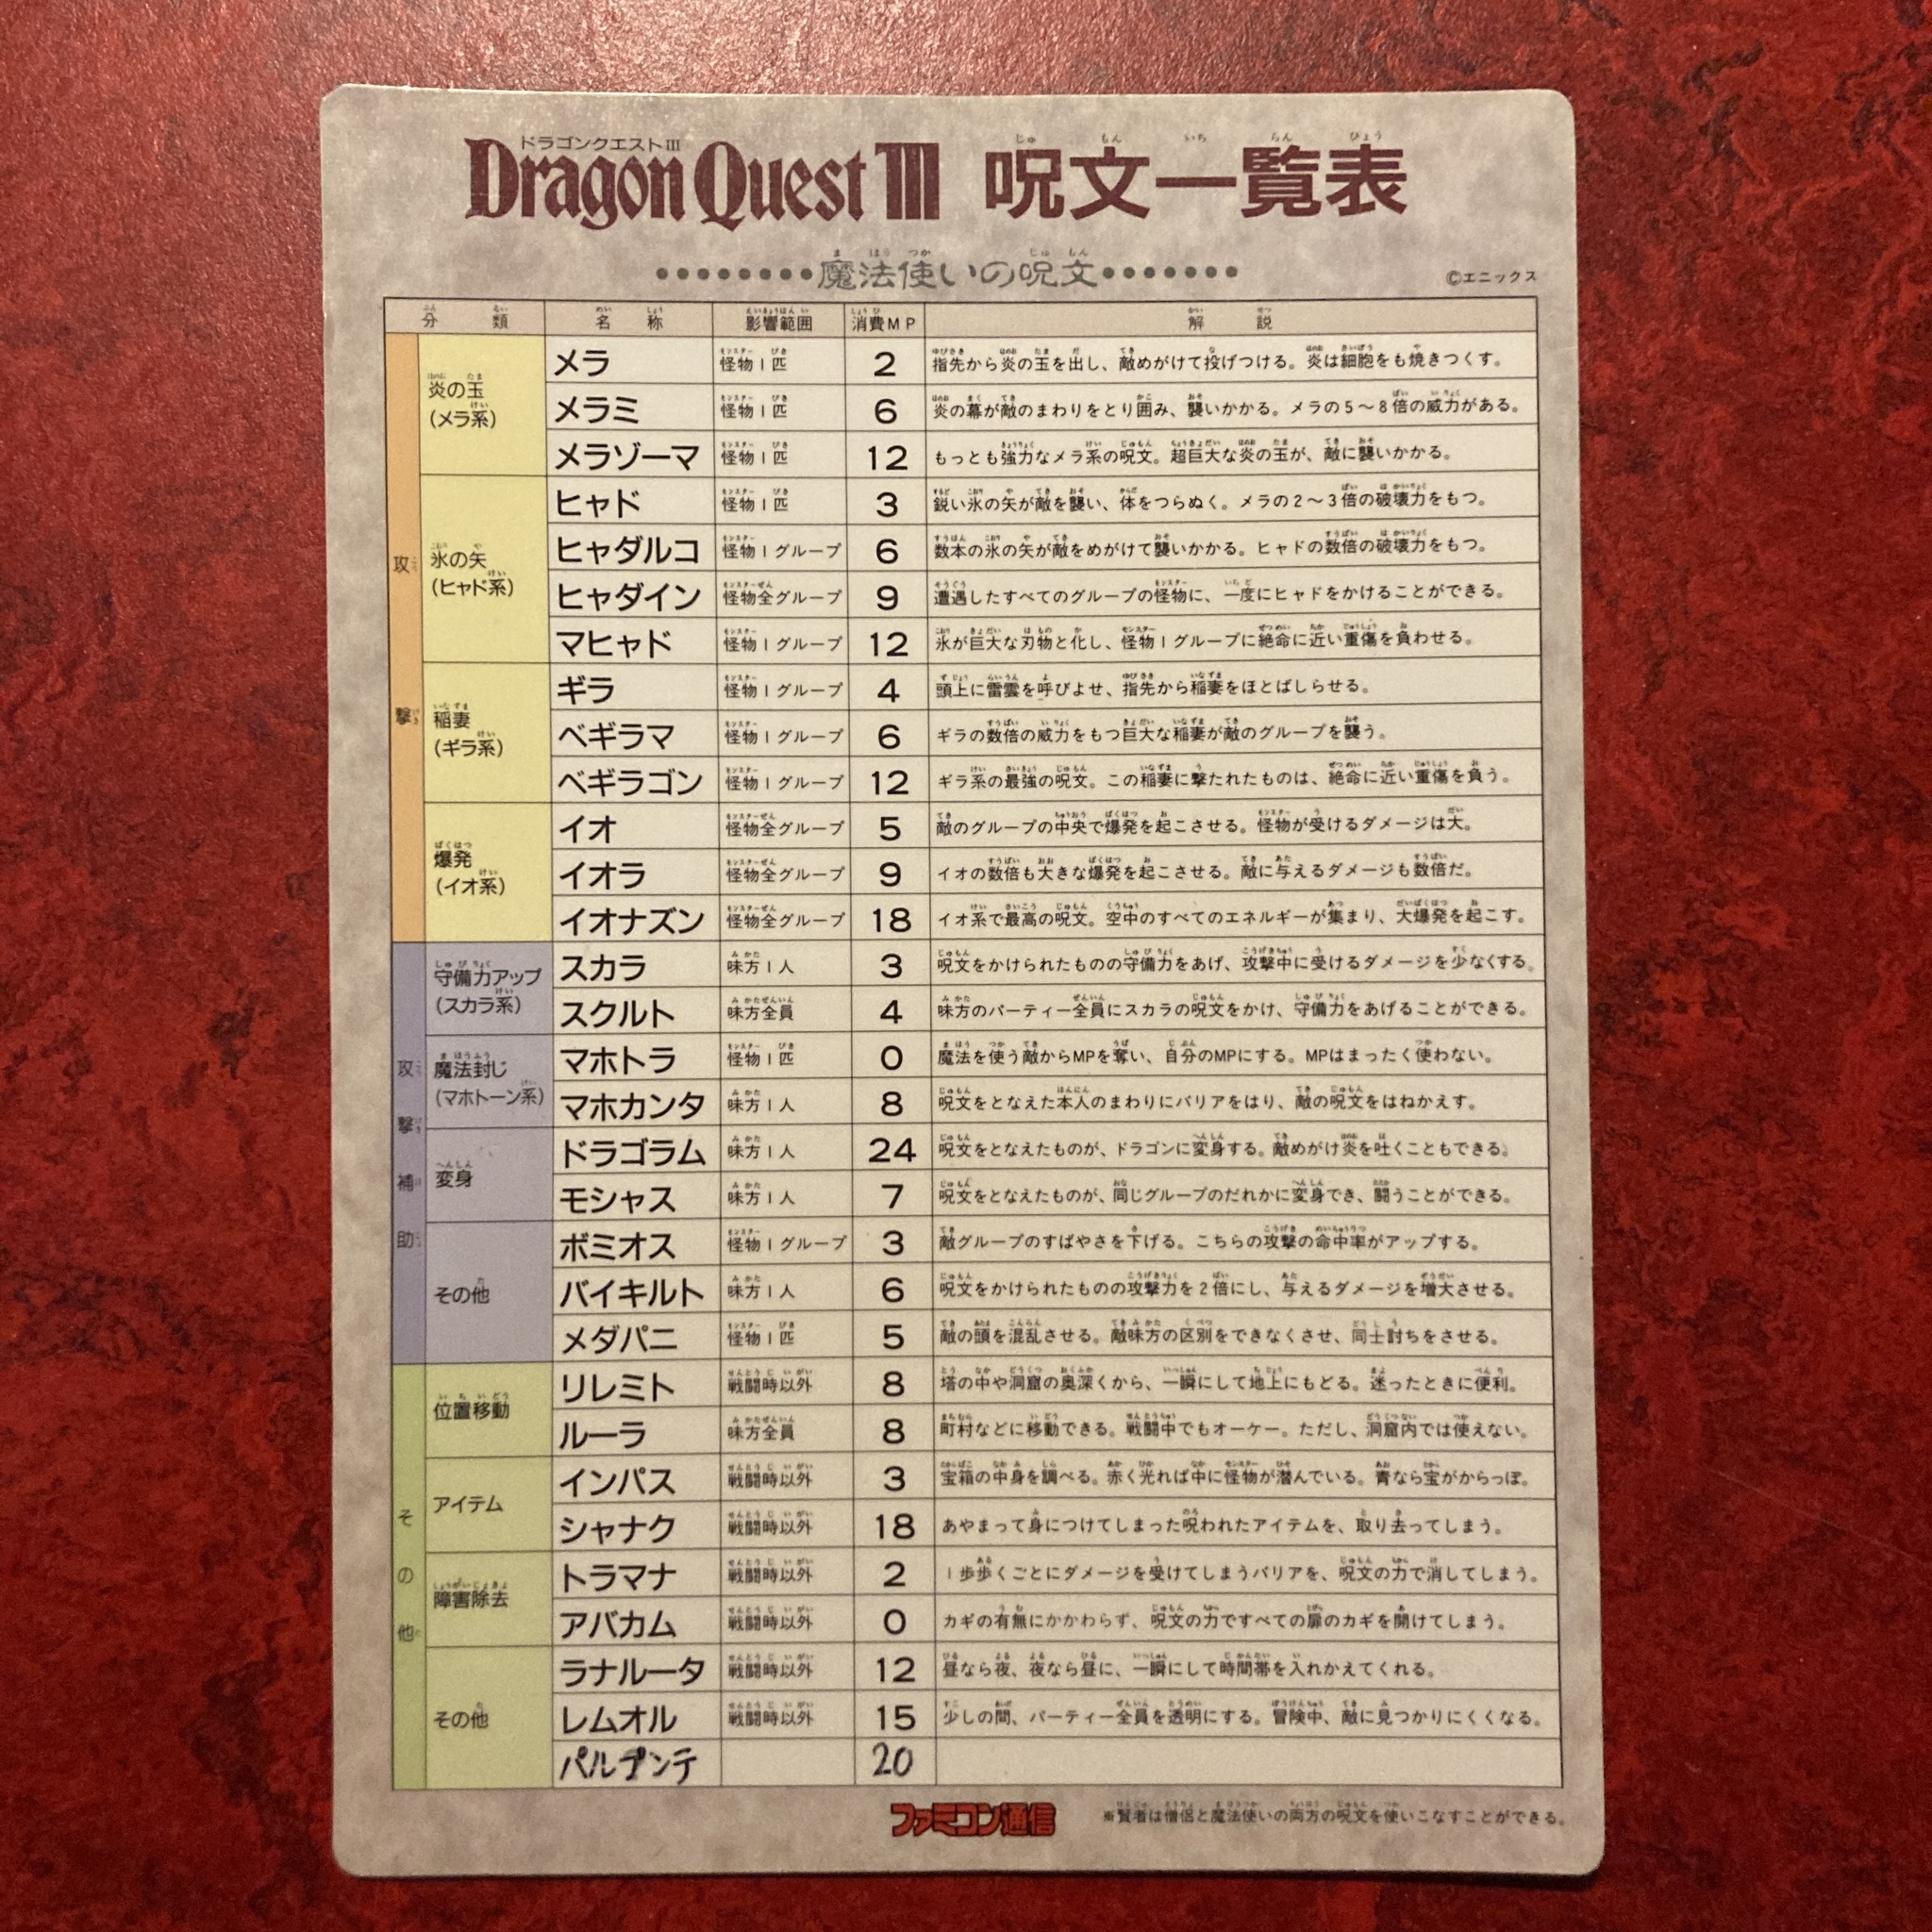 ドラゴンクエストIII
Dragon Quest III 呪文一覧表
魔法使いの呪文
©エニックス
分類 名称 影響範囲 消費MP 解説
攻撃
炎の玉
(メラ系)
メラ 怪物1匹 2 指先から炎の玉を出し、敵めがけて投げつける。炎は細胞をも焼きつくす。
メラミ 怪物1匹 6 炎の幕が敵のまわりをとり囲み、襲いかかる。メラの5〜8倍の威力がある。
メラゾーマ 怪物1匹 12 もっとも強力なメラ系の呪文。超巨大な炎の玉が、敵に襲いかかる。
氷の矢
(ヒャド系)
ヒャド 怪物1匹 3 鋭い氷の矢が敵を襲い、体をつらぬく。メラの2〜3倍の破壊力をもつ。
ヒャダルコ 怪物1グループ 6 数本の氷の矢が敵をめがけて襲いかかる。ヒャドの数倍の破壊力をもつ。
ヒャダイン 怪物全グループ 9 遭遇したすべてのグループの怪物に、一度にヒャドをかけることができる。
マヒャド 怪物1グループ 12 氷が巨大な刃物と化し、怪物1グループに絶命に近い重傷を負わせる。
稲妻
(ギラ系)
ギラ 怪物1グループ 4 頭上に雷雲を呼びよせ、指先から稲妻をほとばしらせる。
ベギラマ 怪物1グループ 6 ギラの数倍の威力をもつ巨大な稲妻が敵のグループを襲う。
ベギラゴン 怪物1グループ 12 ギラ系の最強の呪文。この稲妻に撃たれたものは、絶命に近い重傷を負う。
爆発
(イオ系)
イオ 怪物全グループ 5 敵のグループの中央で爆発を起こさせる。怪物が受けるダメージは大。
イオラ 怪物全グループ 9 イオの数倍も大きな爆発を起こさせる。敵に与えるダメージも数倍だ。
イオナズン 怪物全グループ 18 イオ系で最高の呪文。空中のすべてのエネルギーが集まり、大爆発を起こす。
攻撃補助
守備力アップ
(スカラ系)
スカラ 味方1人 3 呪文をかけられたものの守備力をあげ、攻撃中に受けるダメージを少なくする。
スクルト 味方全員 4 味方のパーティー全員にスカラの呪文をかけ、守備力をあげることができる。
魔法封じ
(マホトーン系)
マホトラ 怪物1匹 0 魔法を使う敵からMPを奪い、自分のMPにする。MPはまったく使わない。
マホカンタ 味方1人 8 呪文をとなえた本人のまわりにバリアをはり、敵の呪文をはねかえす。
変身
ドラゴラム 味方1人 24 呪文をとなえたものが、ドラゴンに変身する。敵めがけ炎を吐くこともできる。
モシャス 味方1人 7 呪文をとなえたものが、同じグループのだれかに変身でき、闘うことができる。
その他
ボミオス 怪物1グループ 3 敵グループのすばやさを下げる。こちらの攻撃の命中率がアップする。
バイキルト 味方1人 6 呪文をかけられたものの攻撃力を2倍にし、与えるダメージを増大させる。
メダパニ 怪物1匹 5 敵の頭を混乱させる。敵味方の区別をできなくさせ、同士討ちをさせる。
その他
位置移動
リレミト 戦闘時以外 8 塔の中や洞窟の奥深くから、一瞬にして地上にもどる。迷ったときに便利。
ルーラ 味方全員 8 町村などに移動できる。戦闘中でもオーケー。ただし、洞窟内では使えない。
アイテム
インパス 戦闘時以外 3 宝箱の中身を調べる。赤く光れば中に怪物が潜んでいる。青なら宝がからっぽ。
シャナク 戦闘時以外 18 あやまって身につけてしまった呪われたアイテムを、取り去ってしまう。
障害除去
トラマナ 戦闘時以外 2 1歩歩くごとにダメージを受けてしまうバリアを、呪文の力で消してしまう。
アバカム 戦闘時以外 0 カギの有無にかかわらず、呪文の力ですべての扉のカギを開けてしまう。
その他
ラナルータ 戦闘時以外 12 昼なら夜、夜なら昼に、一瞬にして時間帯を入れかえてくれる。
レムオル 戦闘時以外 15 少しの間、パーティー全員を透明にする。冒険中、敵に見つかりにくくなる。
パルプンテ 20
ファミコン通信
※賢者は僧侶と魔法使いの両方の呪文を使いこなすことができる。